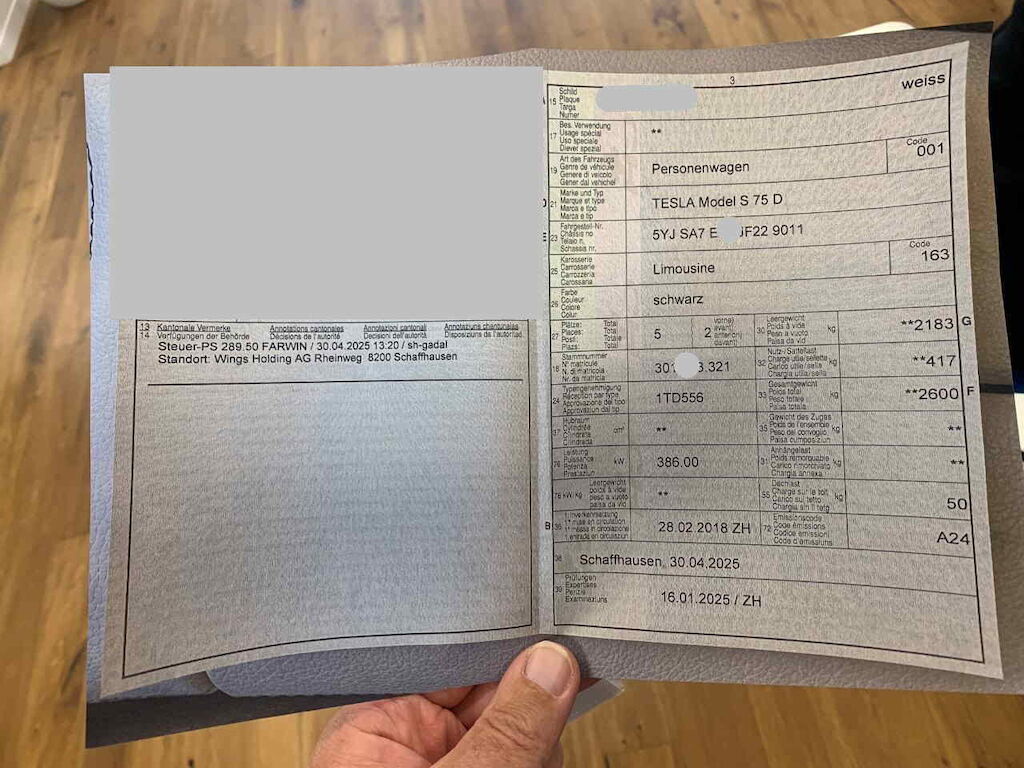 13 Kantonale Vermerke Annotations cantonales Annotazioni cantonali Annotaziuns chantunalas
14 Verfügungen der Behörde Décisions de l'autorité Decisioni dell'autorità Disposiziuns da l'autoritad
Steuer-PS 289.50 FARWIN / 30.04.2025 13:20 / sh-gadal
Standort: Wings Holding AG Rheinweg 8200 Schaffhausen
3
A 15 Schild
Plaque
Targa
Numer
weiss
17 Bes. Verwendung
Usage spécial
Uso speciale
Diever spezial
**
19 Art des Fahrzeugs
Genre de véhicule
Genere di veicolo
Gener dal vehichel
Personenwagen
Code
001
D 21 Marke und Typ
Marque et type
Marca e tipo
Marca e tip
TESLA Model S 75 D
E 23 Fahrgestell-Nr.
Châssis no
Telaio n.
Schassis nr.
5YJ SA7 F22 9011
25 Karosserie
Carrosserie
Carrozzeria
Carossaria
Limousine
Code
163
26 Farbe
Couleur
Colore
Colur
schwarz
27 Plätze: Total
Places: Total
Posti: Totale
Plazs: Total
5
2
vorne)
avant)
anteriori)
davant)
30 Leergewicht
Poids à vide
Peso a vuoto
Paisa da vid
kg
**2183 G
18 Stammnummer
N° matricule
N. di matricola
Nr. da matricla
321
32 Nutz-/Sattellast
Charge utile/sellette
Carico utile/sella
Chargia utila/sella
kg
**417
24 Typengenehmigung
Réception par type
Approvazione del tipo
Approvaziun dal tip
1TD556
33 Gesamtgewicht
Poids total
Peso totale
Paisa totala
kg
**2600 F
37 Hubraum
Cylindrée
Cilindrata
Cilindrada
cm³
**
35 Gewicht des Zuges
Poids de l'ensemble
Peso del convoglio
Paisa cumposiziun
kg
**
76 Leistung
Puissance
Potenza
Prestaziun
kW
386.00
31 Anhängelast
Poids remorquable
Carico rimorchiato
Chargia annexa
kg
**
78 kW/kg
Leergewicht
poids à vide
peso a vuoto
paisa da vid
**
55 Dachlast
Charge sur le toit
Carico sul tetto
Chargia sin il tetg
kg
50
B 36 1. Inverkehrsetzung
1re mise en circulation
1a messa in circolazione
1. entrada en circulaziun
28.02.2018 ZH
72 Emissionscode
Code émissions
Codice emissioni
Code d'emissiuns
A24
38 Schaffhausen, 30.04.2025
39 Prüfungen
Expertises
Perizie
Examinaziuns
16.01.2025 / ZH